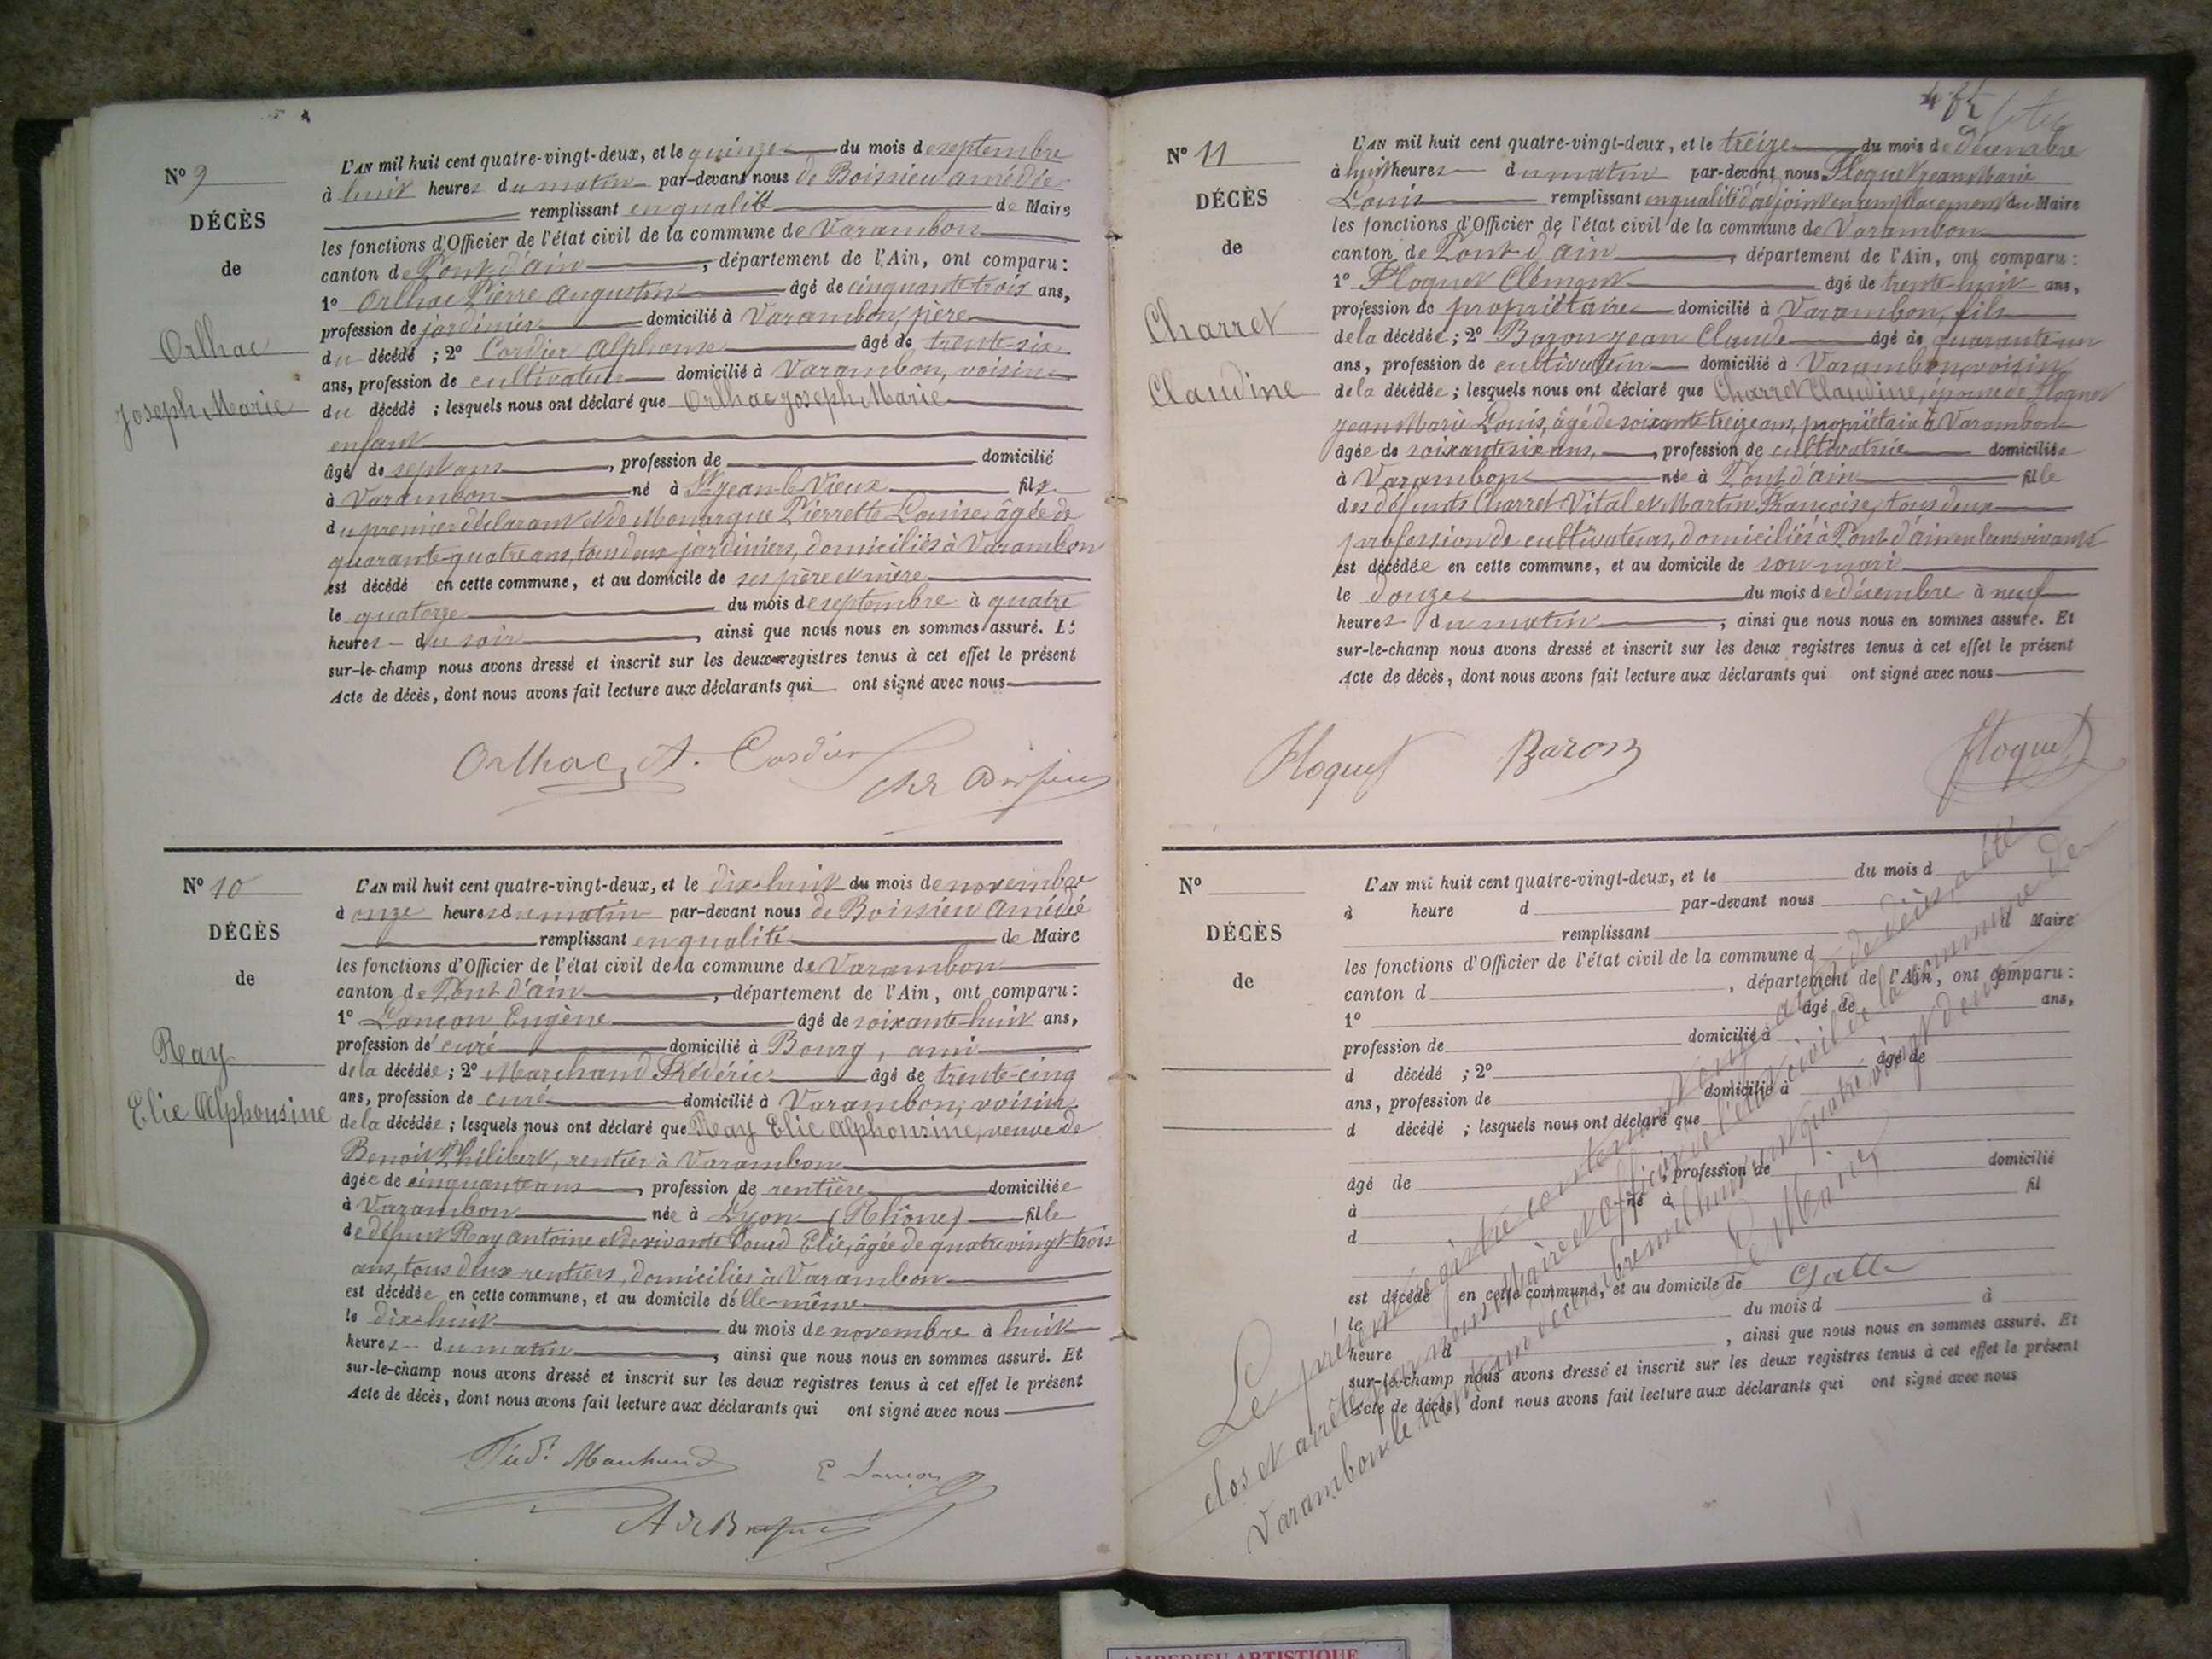 Nº 9
DÉCÈS
de
Orlhac
Joseph Marie
L'AN mil huit cent quatre-vingt-deux, et le quinze du mois de septembre
à huit heures du matin par-devant nous de Boissieu Amédée
remplissant en qualité de Maire
les fonctions d'Officier de l'état civil de la commune de Varambon
canton de Pont d'ain, département de l'Ain, ont comparu:
1º Orlhac Pierre Augustin âgé de cinquante-trois ans,
profession de jardinier domicilié à Varambon, père
du décédé ; 2º Cordier Alphonse âgé de trente-six
ans, profession de cultivateur domicilié à Varambon, voisin
du décédé ; lesquels nous ont déclaré que Orlhac Joseph Marie
enfant
âgé de sept ans, profession de domicilié
à Varambon né à St Jean-le-Vieux fils
du premier déclarant et de Monarque Pierrette Louise, âgée de
quarante-quatre ans, tous deux jardiniers, domiciliés à Varambon
est décédé en cette commune, et au domicile de ses père et mère
le quatorze du mois de septembre à quatre
heures du soir, ainsi que nous nous en sommes assuré. Et
sur-le-champ nous avons dressé et inscrit sur les deux registres tenus à cet effet le présent
Acte de décès, dont nous avons fait lecture aux déclarants qui ont signé avec nous
Orlhac A. Cordier
Nº 10
DÉCÈS
de
Ray
Elie Alphonsine
L'AN mil huit cent quatre-vingt-deux, et le dix-huit du mois de novembre
à onze heures du matin par-devant nous de Boissieu Amédé
remplissant en qualité de Maire
les fonctions d'Officier de l'état civil de la commune de Varambon
canton de Pont d'ain, département de l'Ain, ont comparu:
1º Lançon Eugène âgé de soixante-huit ans,
profession de curé domicilié à Bourg, ami
de la décédée ; 2º Marchand Frédéric âgé de trente-cinq
ans, profession de curé domicilié à Varambon, voisin
de la décédée ; lesquels nous ont déclaré que Ray Elie Alphonsine, veuve de
Benoit Philibert, rentier à Varambon
âgée de cinquante ans, profession de rentière domiciliée
à Varambon née à Lyon (Rhône) fille
de défunt Ray Antoine et de vivante Elie, âgée de quatre vingt-trois
ans, tous deux rentiers, domiciliés à Varambon
est décédée en cette commune, et au domicile d'elle-même
le dix-huit du mois de novembre à huit
heures du matin, ainsi que nous nous en sommes assuré. Et
sur-le-champ nous avons dressé et inscrit sur les deux registres tenus à cet effet le présent
Acte de décès, dont nous avons fait lecture aux déclarants qui ont signé avec nous
Féd. Marchand E Lançon
Nº 11
DÉCÈS
de
Charret
Claudine
L'AN mil huit cent quatre-vingt-deux, et le treize du mois de décembre
à huit heures du matin par-devant nous Floquet Jean Marie
Louis remplissant en qualité d'adjoint en remplacement du Maire
les fonctions d'Officier de l'état civil de la commune de Varambon
canton de Pont d'ain, département de l'Ain, ont comparu:
1º Floquet Clément âgé de trente-huit ans,
profession de propriétaire domicilié à Varambon, fils
de la décédée ; 2º Baron Jean Claude âgé de quarante un
ans, profession de cultivateur domicilié à Varambon, voisin
de la décédée ; lesquels nous ont déclaré que Charret Claudine, épouse de Floquet
Jean Marie Louis, âgé de soixante-treize ans, propriétaire à Varambon
âgée de soixante six ans, profession de cultivatrice domiciliée
à Varambon née à Pont d'ain fille
des défunts Charret Vital et Martin Françoise, tous deux
profession de cultivateurs, domiciliés à Pont d'ain en leurs vivants
est décédée en cette commune, et au domicile de son mari
le douze du mois de décembre à neuf
heures du matin, ainsi que nous nous en sommes assuré. Et
sur-le-champ nous avons dressé et inscrit sur les deux registres tenus à cet effet le présent
Acte de décès, dont nous avons fait lecture aux déclarants qui ont signé avec nous
Floquet Baron Floquet
Nº
DÉCÈS
de
L'AN mil huit cent quatre-vingt-deux, et le du mois d
à heure d par-devant nous
remplissant d Maire
les fonctions d'Officier de l'état civil de la commune d
canton d, département de l'Ain, ont comparu:
1º âgé de ans,
profession de domicilié à
d décédé ; 2º âgé de
ans, profession de domicilié à
d décédé ; lesquels nous ont déclaré que
âgé de, profession de domicilié
à né à fil
d
est décédé en cette commune, et au domicile de
le du mois d à
heure d, ainsi que nous nous en sommes assuré. Et
sur-le-champ nous avons dressé et inscrit sur les deux registres tenus à cet effet le présent
Acte de décès, dont nous avons fait lecture aux déclarants qui ont signé avec nous
Le présent registre contenant onze actes de décès, a été
clos et arrêté par nous, Maire et Officier de l'état civil de la commune de
Varambon le trente un décembre mil huit cent quatre vingt deux
Le Maire,
AMBERIEU ARTISTIQUE